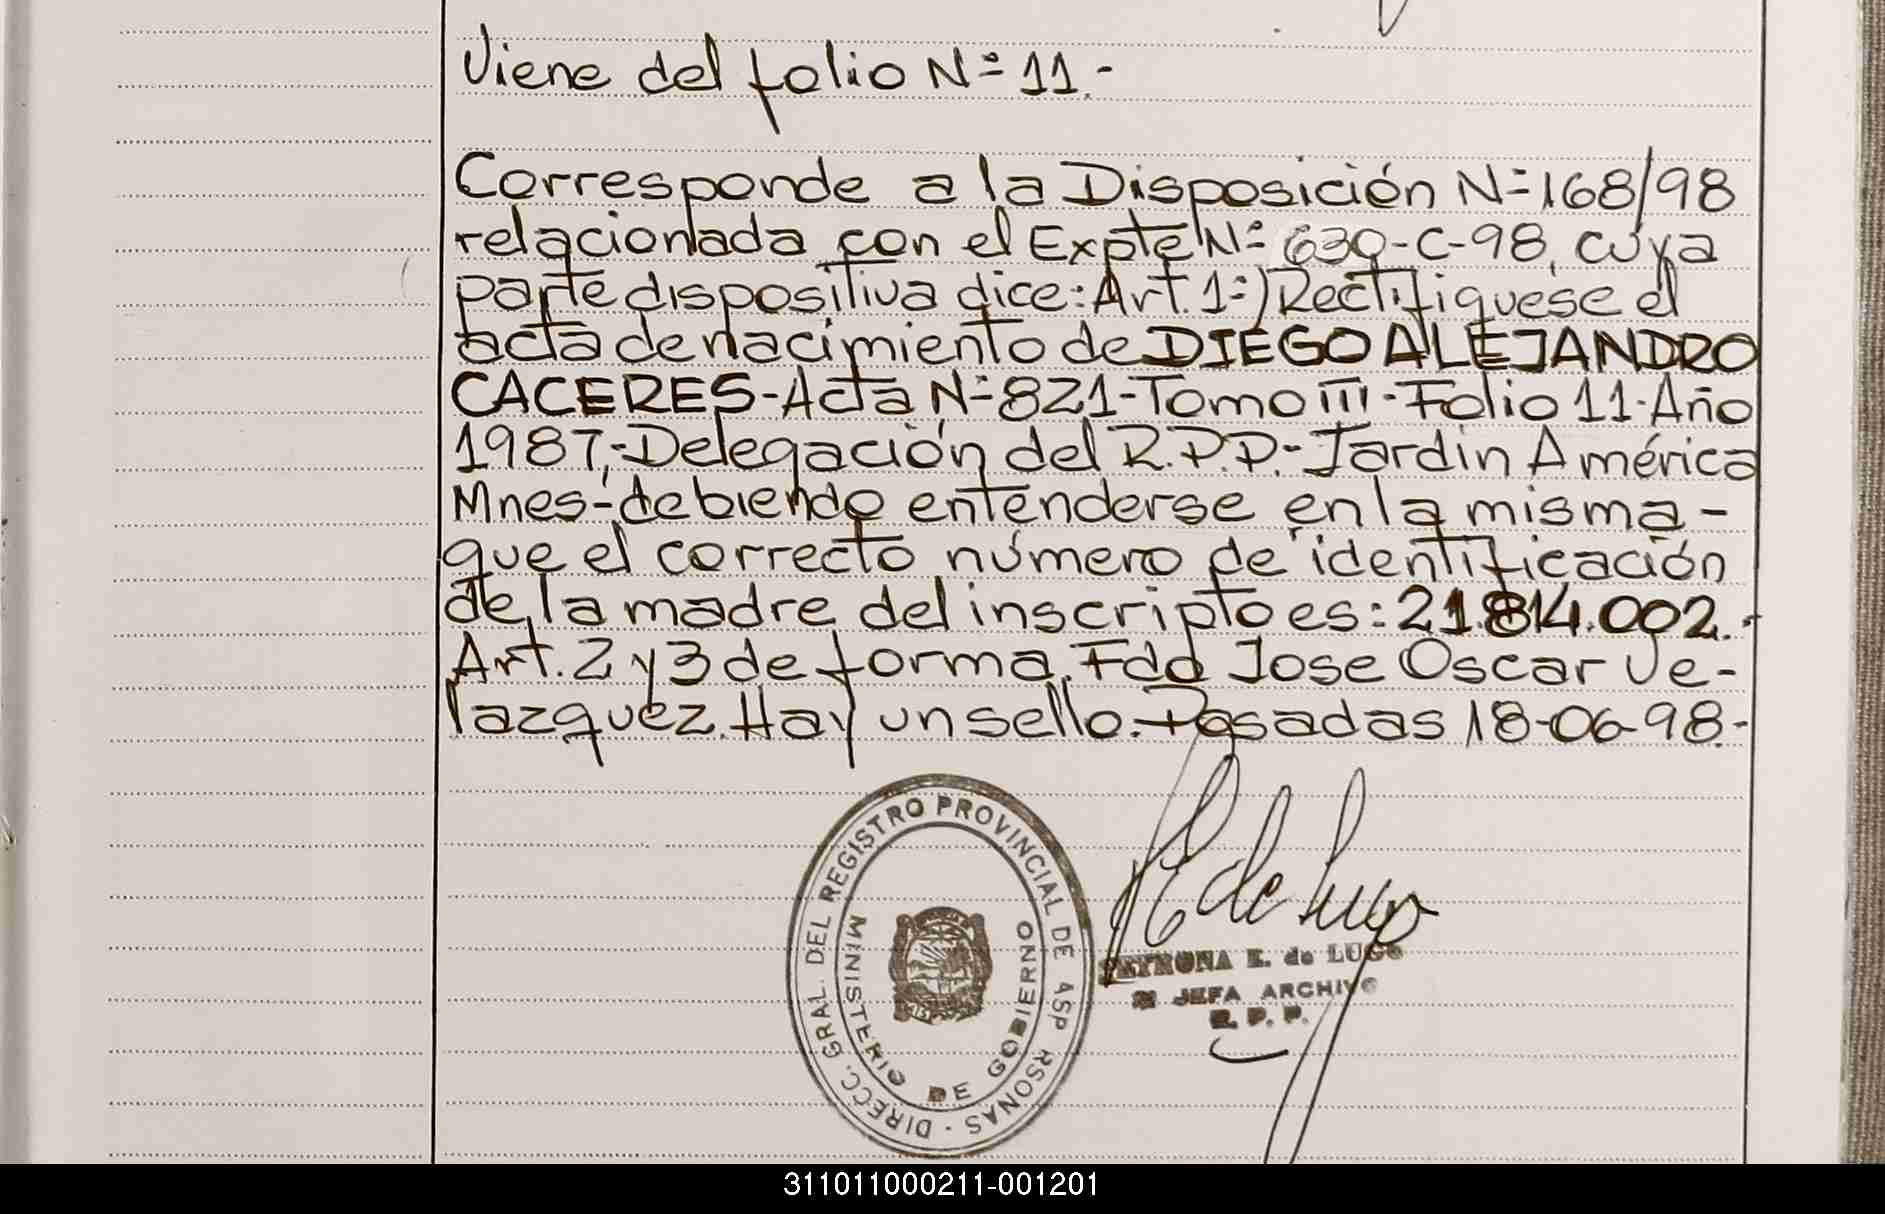 Viene del folio N= 11.-
Corresponde a la Disposición N=168/98
relacionada con el Expte N= 630-C-98, cuya
parte dispositiva dice: Art. 1=) Rectifiquese el
acta de nacimiento de DIEGO ALEJANDRO
CACERES-Acta N=821-Tomo III-Folio 11-Año
1987,-Delegación del R.P.P.-Jardin América
Mnes-debiendo entenderse en la misma-
que el correcto número de identificación
de la madre del inscripto es: 21.814.002.-
Art. 2 y 3 de forma. Fdo Jose Oscar Ve-
lazquez. Hay un sello.-Posadas 18-06-98.-
DIRECC. GRAL. DEL REGISTRO PROVINCIAL DE
MINISTERIO DE GOBIERNO
E de Lugo
PETRONA E. de LUGO
JEFA ARCHIVO
R. P. P.
311011000211-001201